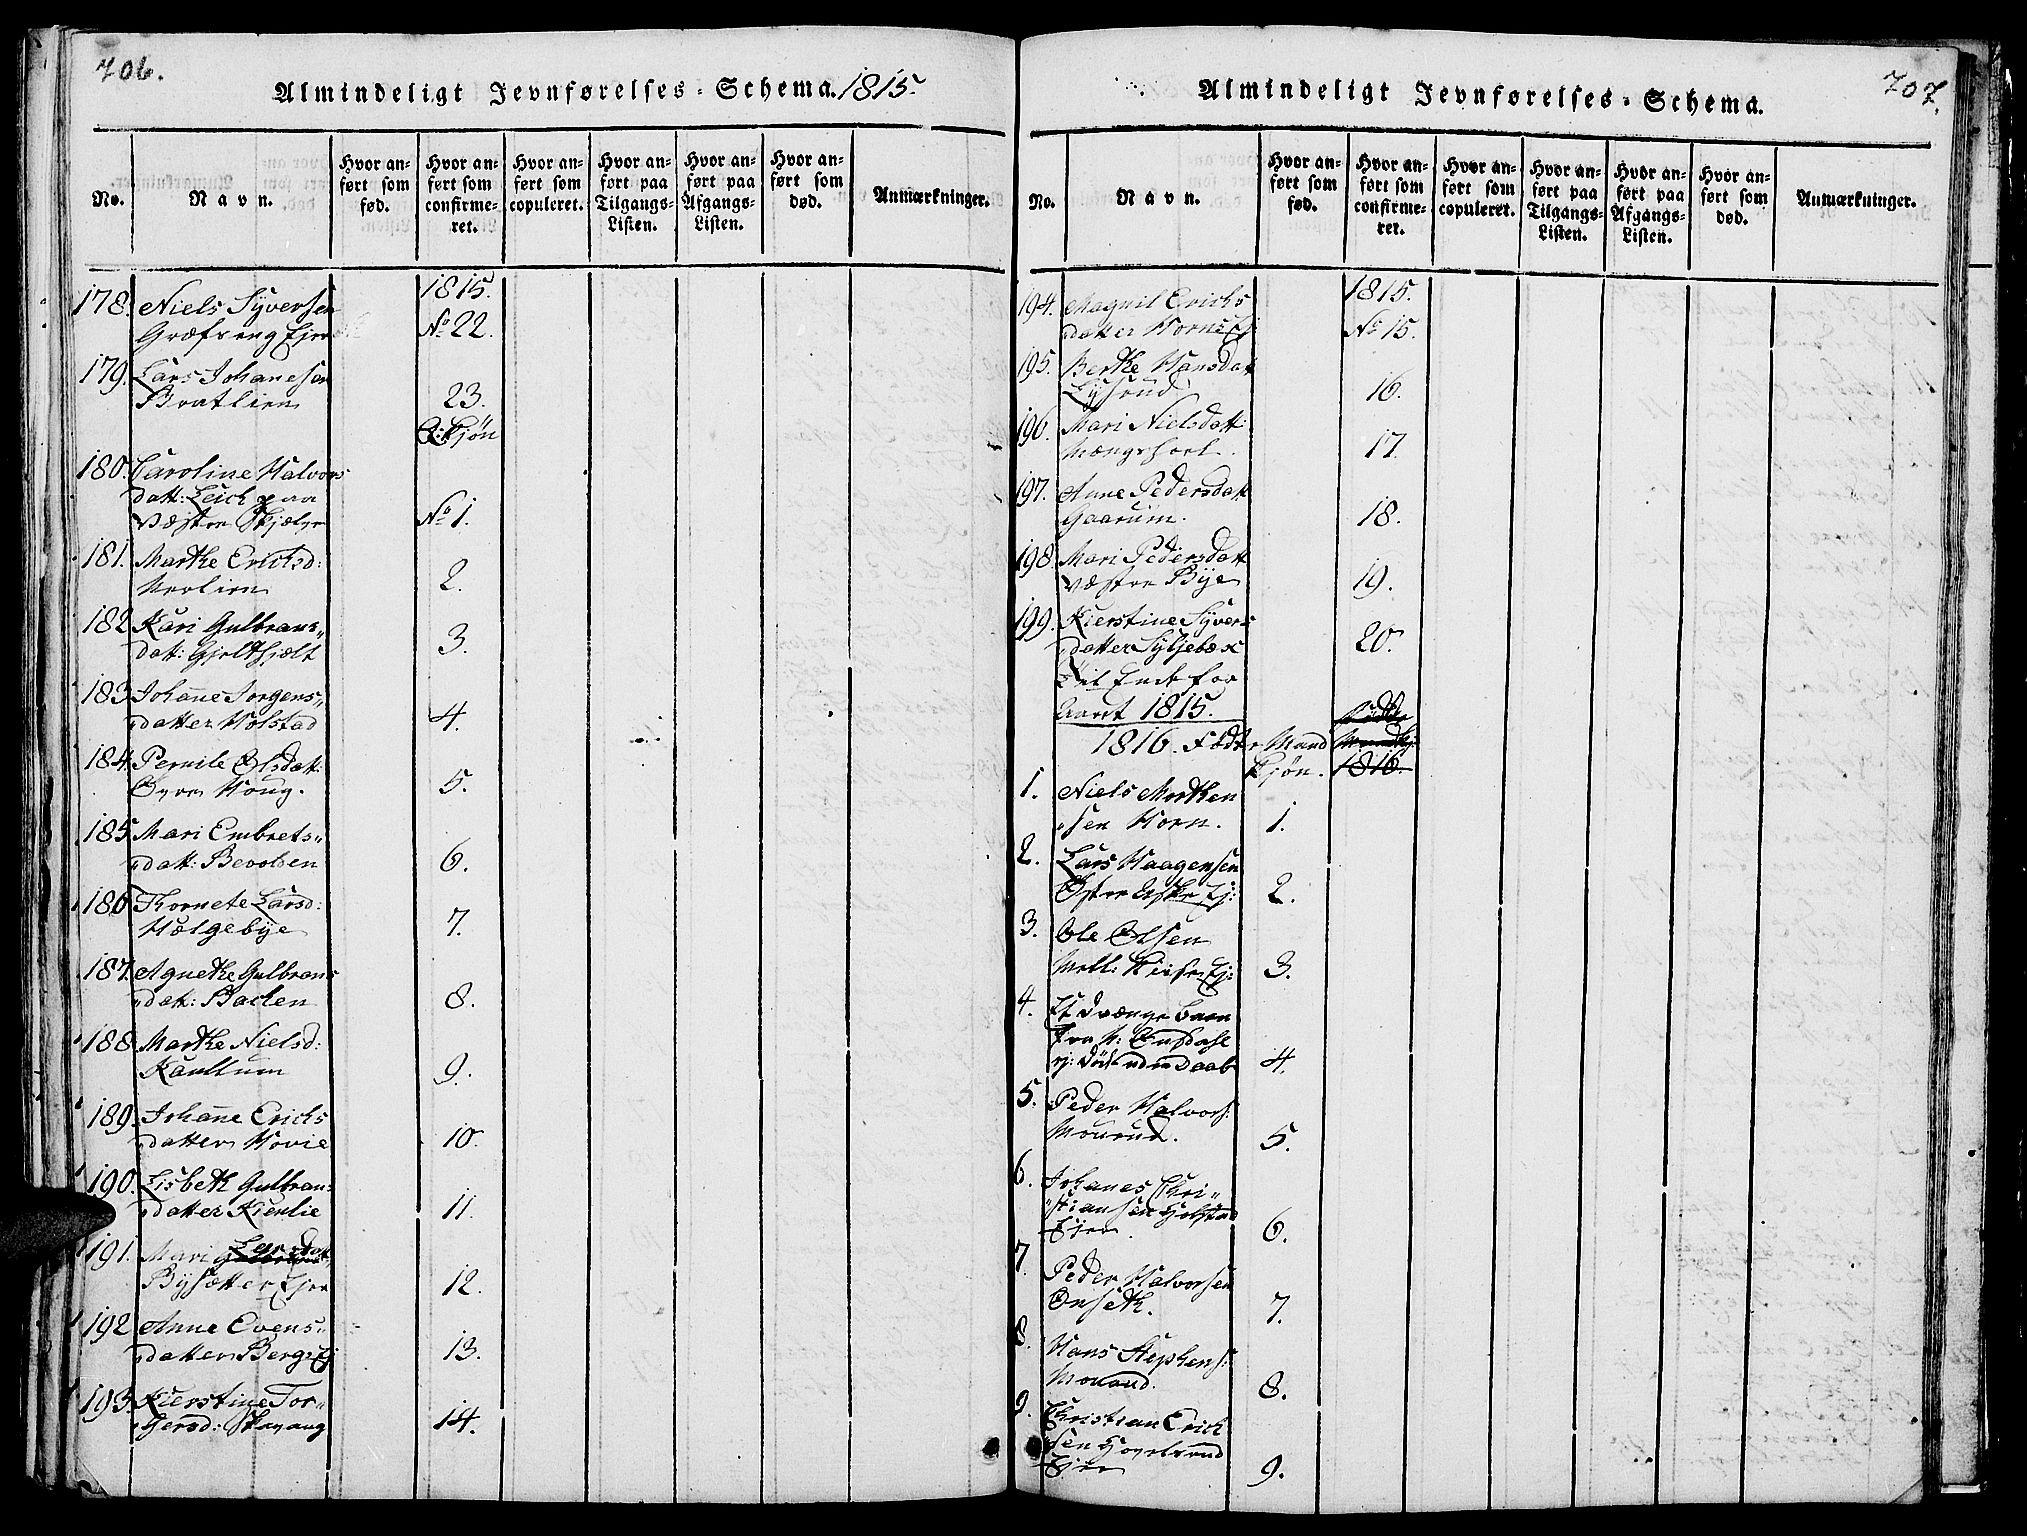 706.
Almindeligt Jevnførelses-Schema. 1815.
No.
Navn.
Hvor anført som fød.
Hvor anført som confirmeret.
Hvor anført som copuleret.
Hvor anført paa Tilgangs-Listen.
Hvor anført paa Afgangs-Listen.
Hvor anført som død.
Anmærkninger.
1815.
178. Niels Syversen
Græfseng Ejer No 22.
179. Lars Johanesen
Bratlien 23.
Q: Kjøn
180. Caroline Halvors
datt: Leich paa
Væstre Skjelve No 1.
181. Marthe Erichsd:
2.
182 Kari Gulbrans„
datt: 3.
183 Johane Jorgens„
„datter Holstad 4.
184. Pernile Olsdatt:
Øvre Houg. 5.
185. Mari Embrets„
„datt: Bevolden 6.
186. Thornete Larsd:
Hælgebye 7.
187. Agnethe Gulbrans
„datt: Baclen 8.
188. Marthe Nielsd:
Kaullum 9.
189. Johane Erichs
„datter Hovie 10.
190. Lisbeth Gulbrans
„datter Kienlie 11.
191. Mari Larsdatt
Bysætter Ejer 12.
192 Anne Evens„
„datter Bergs Ej 13.
193. Kierstine Tor„
„gersd: Skavang 14.
707.
Almindeligt Jevnførelses-Schema.
No.
Navn.
Hvor anført som fød.
Hvor anført som confirmeret.
Hvor anført som copuleret.
Hvor anført paa Tilgangs-Listen.
Hvor anført paa Afgangs-Listen.
Hvor anført som død.
Anmærkninger.
1815.
194. Magnil Erichs
„datter Horns Ej No 15.
195. Berthe Hansdat
Lysrud 16.
196. Mari Nielsdatt:
17.
197. Anne Pedersdatt
Gaarum. 18.
198. Mari Pedersdatt
Væstre Bye 19.
199. Kierstine Syvers
„datter Syljebæk 20.
Til Ende for
Aaret 1815.
1816. Fødte Mand
Kjøn. 1816.
1. Niels Morthen
„sen Horn. 1.
2. Lars Haagensen
Østre Ej: 2.
3. Ole Olsen
Mell: Ej: 3.
4. Et Drænge Barn
fra
Ej: Død uden Daab 4.
5. Peder Halvors:
Mourud. 5.
6. Johanes Chri„
„stiansen
Ejer. 6.
7. Peder Halvorsen
Onseth. 7.
8. Hans Stephens:
Morud. 8.
9. Christian Erich
„sen Hovelsrud
Ejer 9.